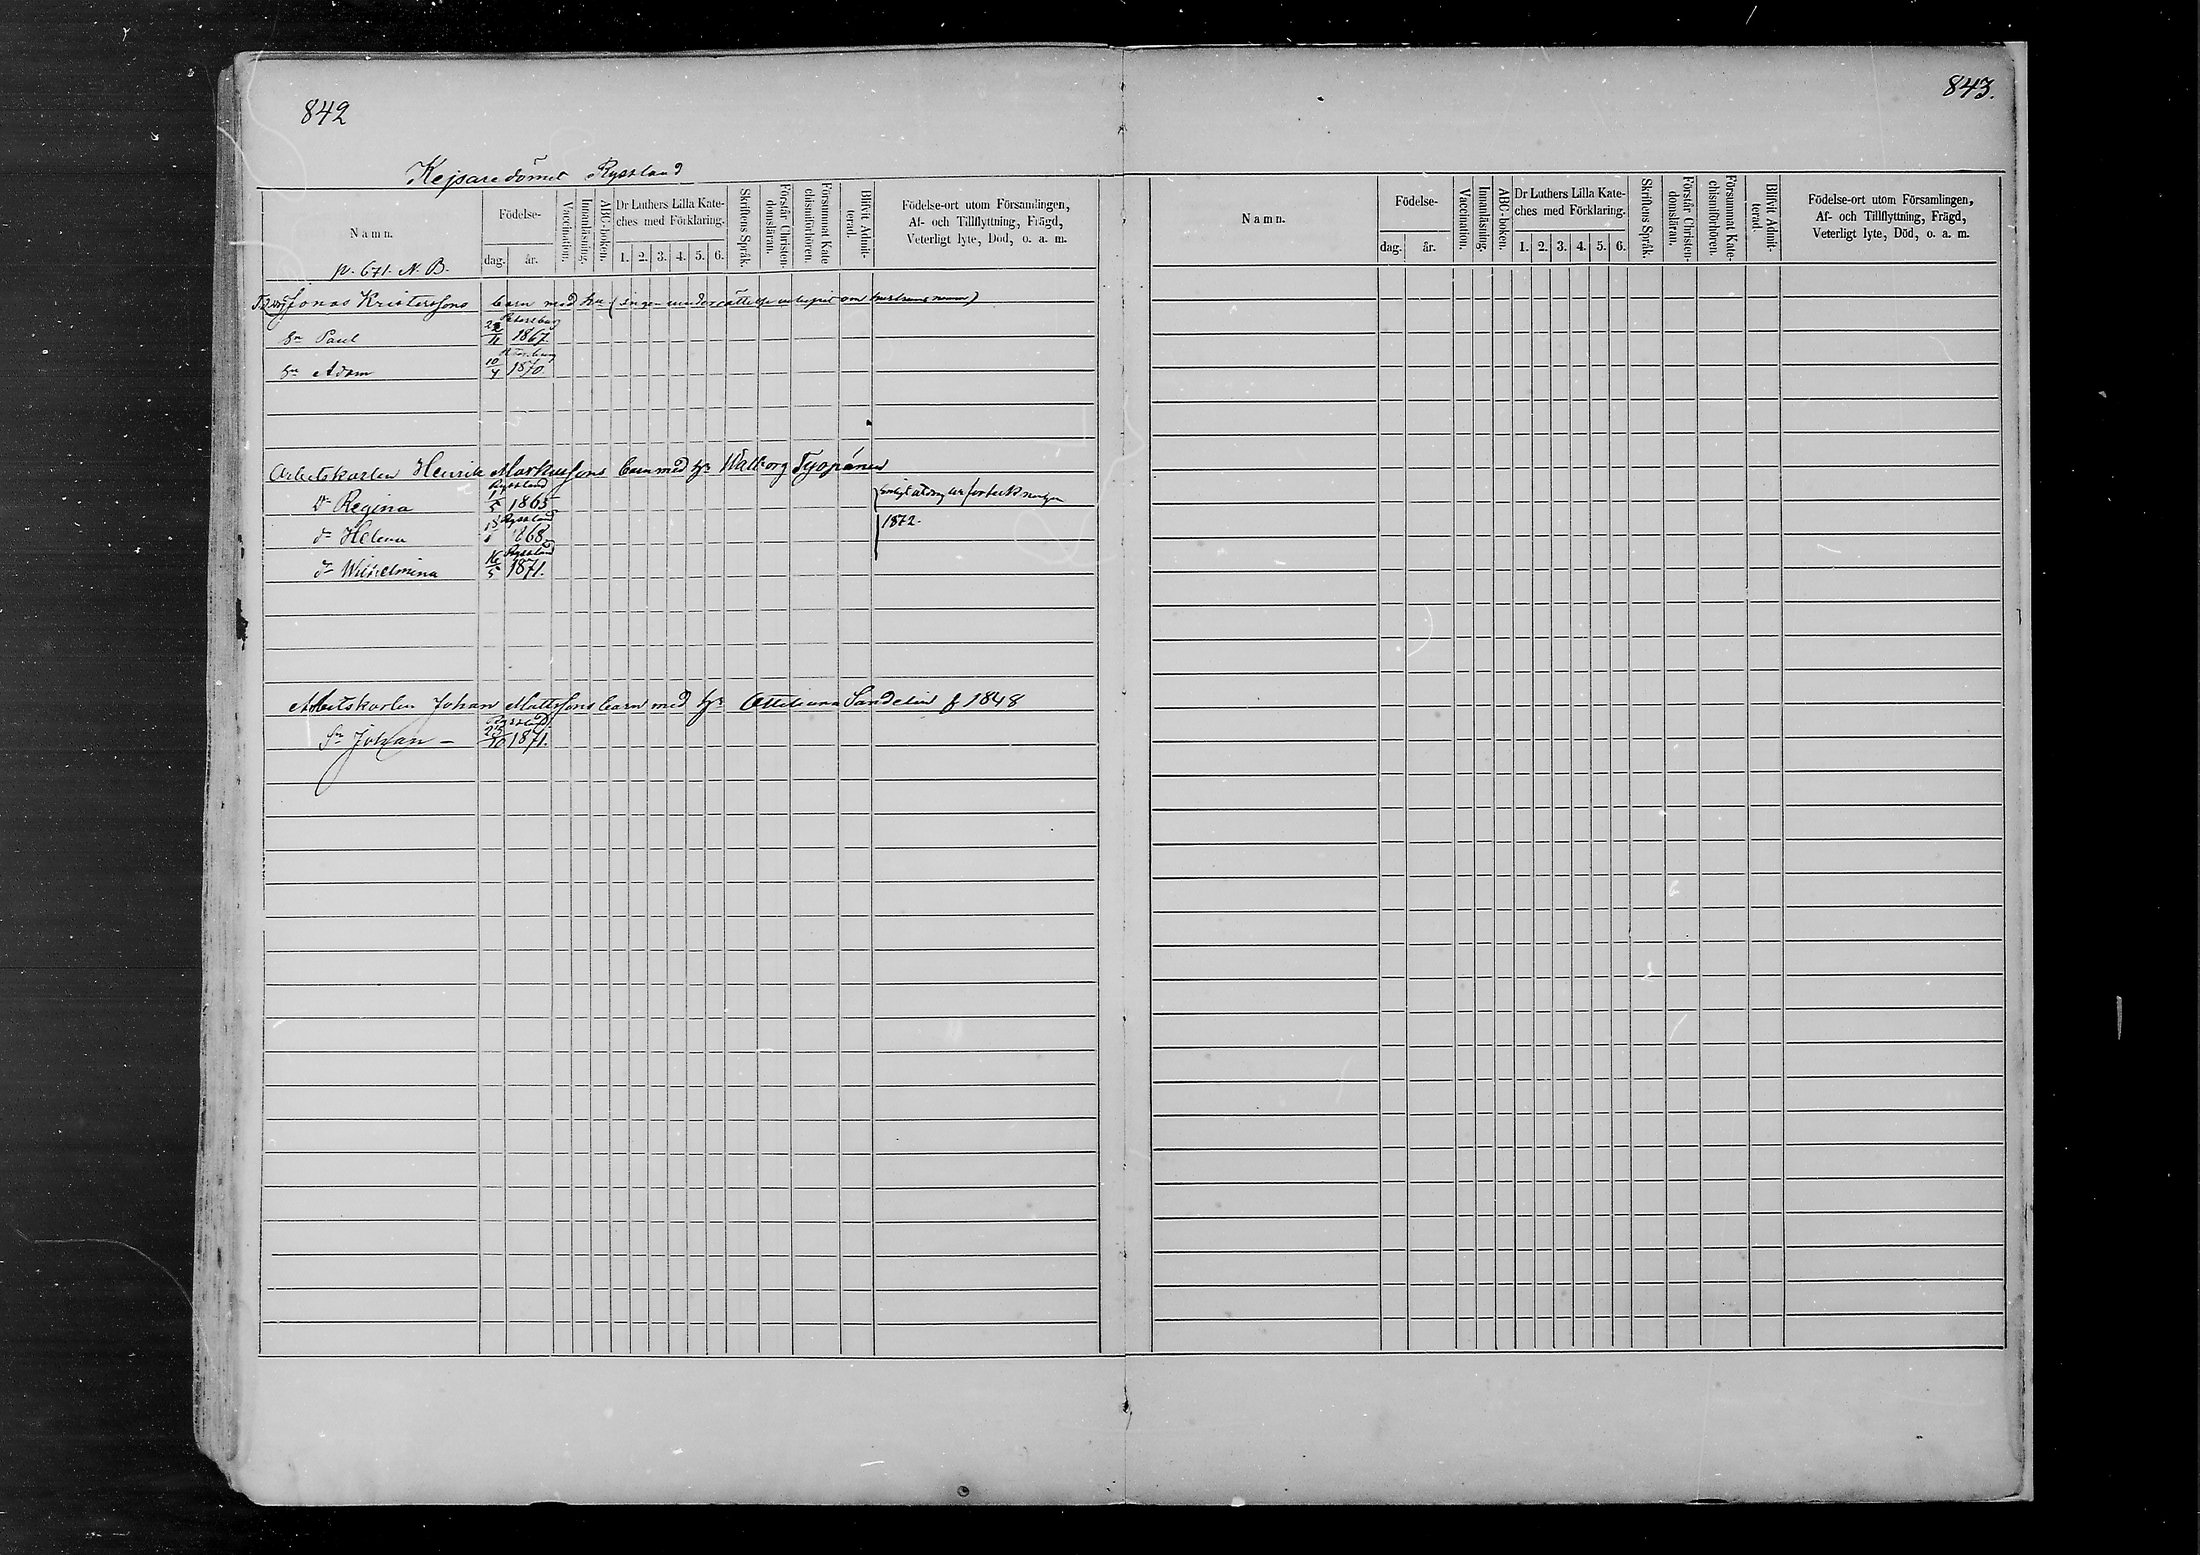 842
843.
Kejsaredömet Ryssland
Namn.
Födelse-
dag.
år.
Vaccination.
Innanläsning.
ABC-boken.
Dr Luthers Lilla Kate-
ches med Förklaring.
1. 2. 3. 4. 5. 6.
Skriftens Språk.
Förstår Christen-
domsläran.
Försummat Kate
chismiförhören.
Blifvit Admit-
terad.
Födelse-ort utom Församlingen,
Af- och Tillflyttning, Frägd,
Veterligt lyte, Död, o. a. m.
p. 671. N. B.
Jonas Kristerssons barn med hu (ingen underrättelse om hustruns namn)
Petersburg
Sn Paul 11 1867.
Sn Adam 10 1870.
Arbetskarlen Henrik Markussons barn med hu Walborg Tyopönen
Ryssland
Dr Regina 1/5 1865
Ryssland
dr Helena 1868.
Ryssland
dr Wilhelmina 16/5 1871.
1872.
Arbetskarlen Johan Mattssons barn med hu Ottiliana Sandelin f 1848
Ryssland
Sn Johan – 23/10 1871.
Namn.
Födelse-
dag.
år.
Vaccination.
Innanläsning.
ABC-boken.
Dr Luthers Lilla Kate-
ches med Förklaring.
1. 2. 3. 4. 5. 6.
Skriftens Språk.
Förstår Christen-
domsläran.
Försummat Kate-
chismiförhören.
Blifvit Admit-
terad.
Födelse-ort utom Församlingen,
Af- och Tillflyttning, Frägd,
Veterligt lyte, Död, o. a. m.